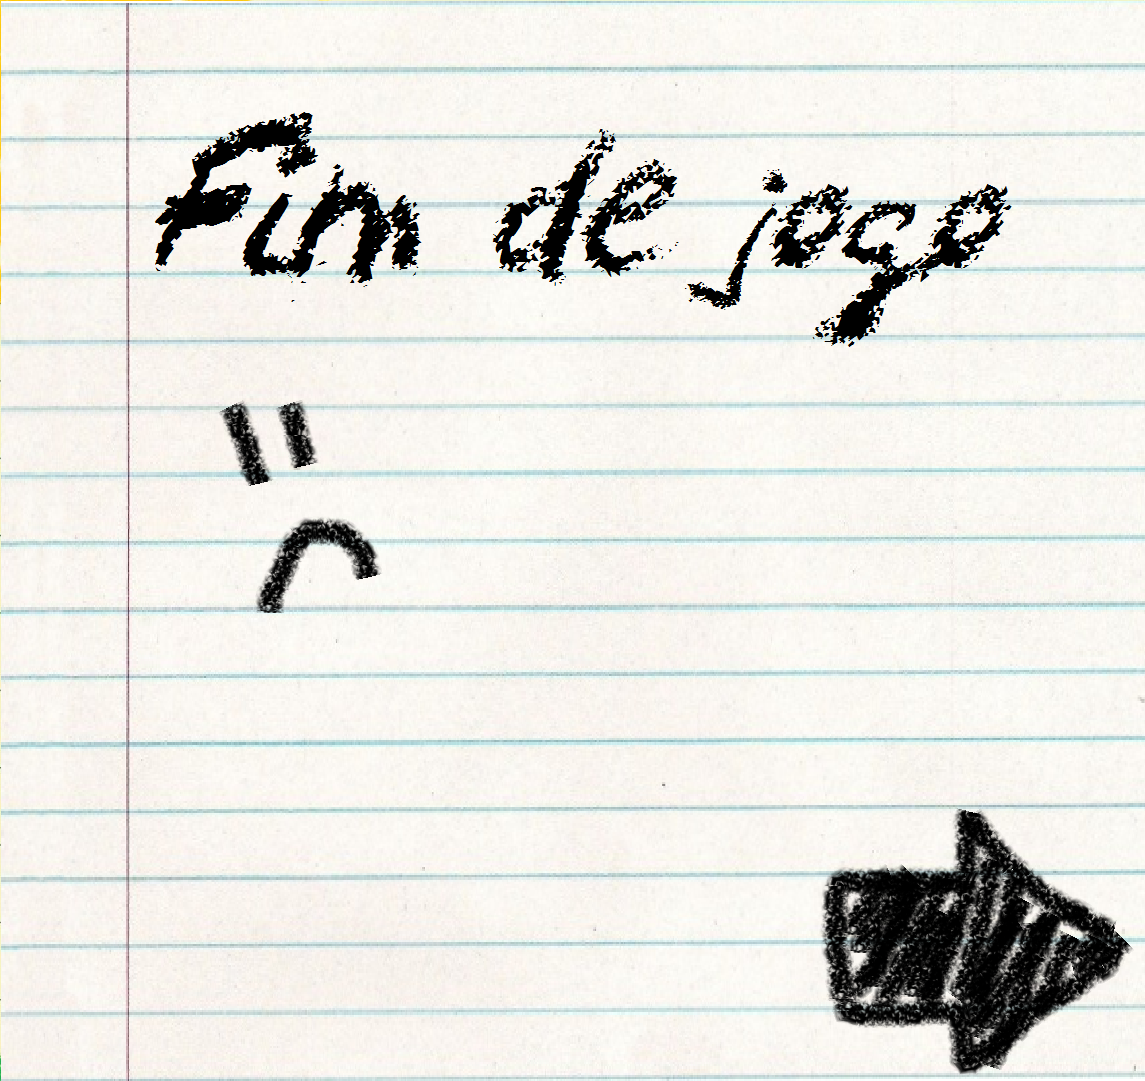 Fim de jogo